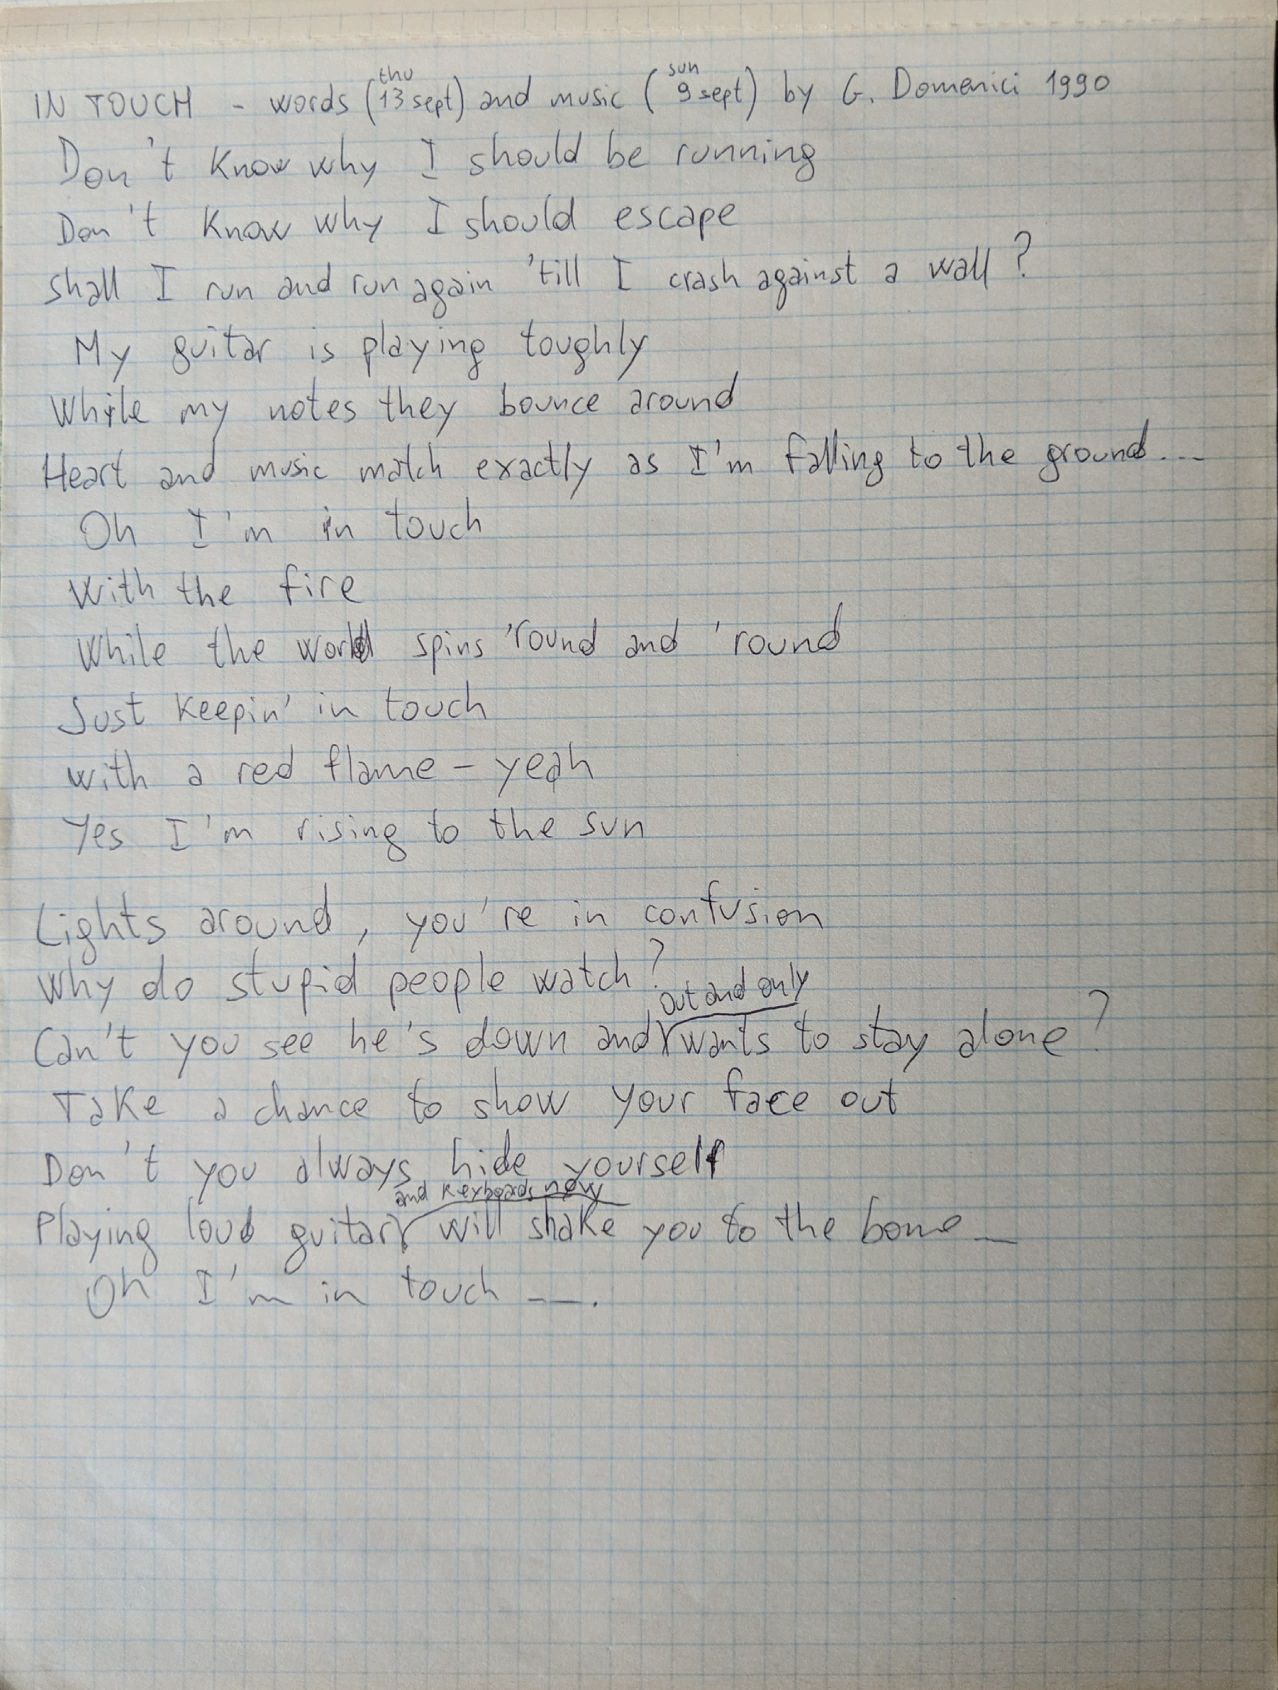 IN TOUCH - words (thu 13 sept) and music (sun 9 sept) by G. Domenici 1990
Don't Know why I should be running
Don't Know why I should escape
Shall I run and run again 'till I crash against a wall?
My guitar is playing toughly
While my notes they bounce around
Heart and music match exactly as I'm falling to the ground...
Oh I'm in touch
With the fire
While the world spins 'round and 'round
Just Keepin' in touch
with a red flame - yeah
Yes I'm rising to the sun
Lights around, you're in confusion
Why do stupid people watch?
Can't you see he's down and out and only wants to stay alone?
Take a chance to show your face out
Don't you always hide yourself
Playing loud guitar and Keyboards now will shake you to the bone __
Oh I'm in touch __.